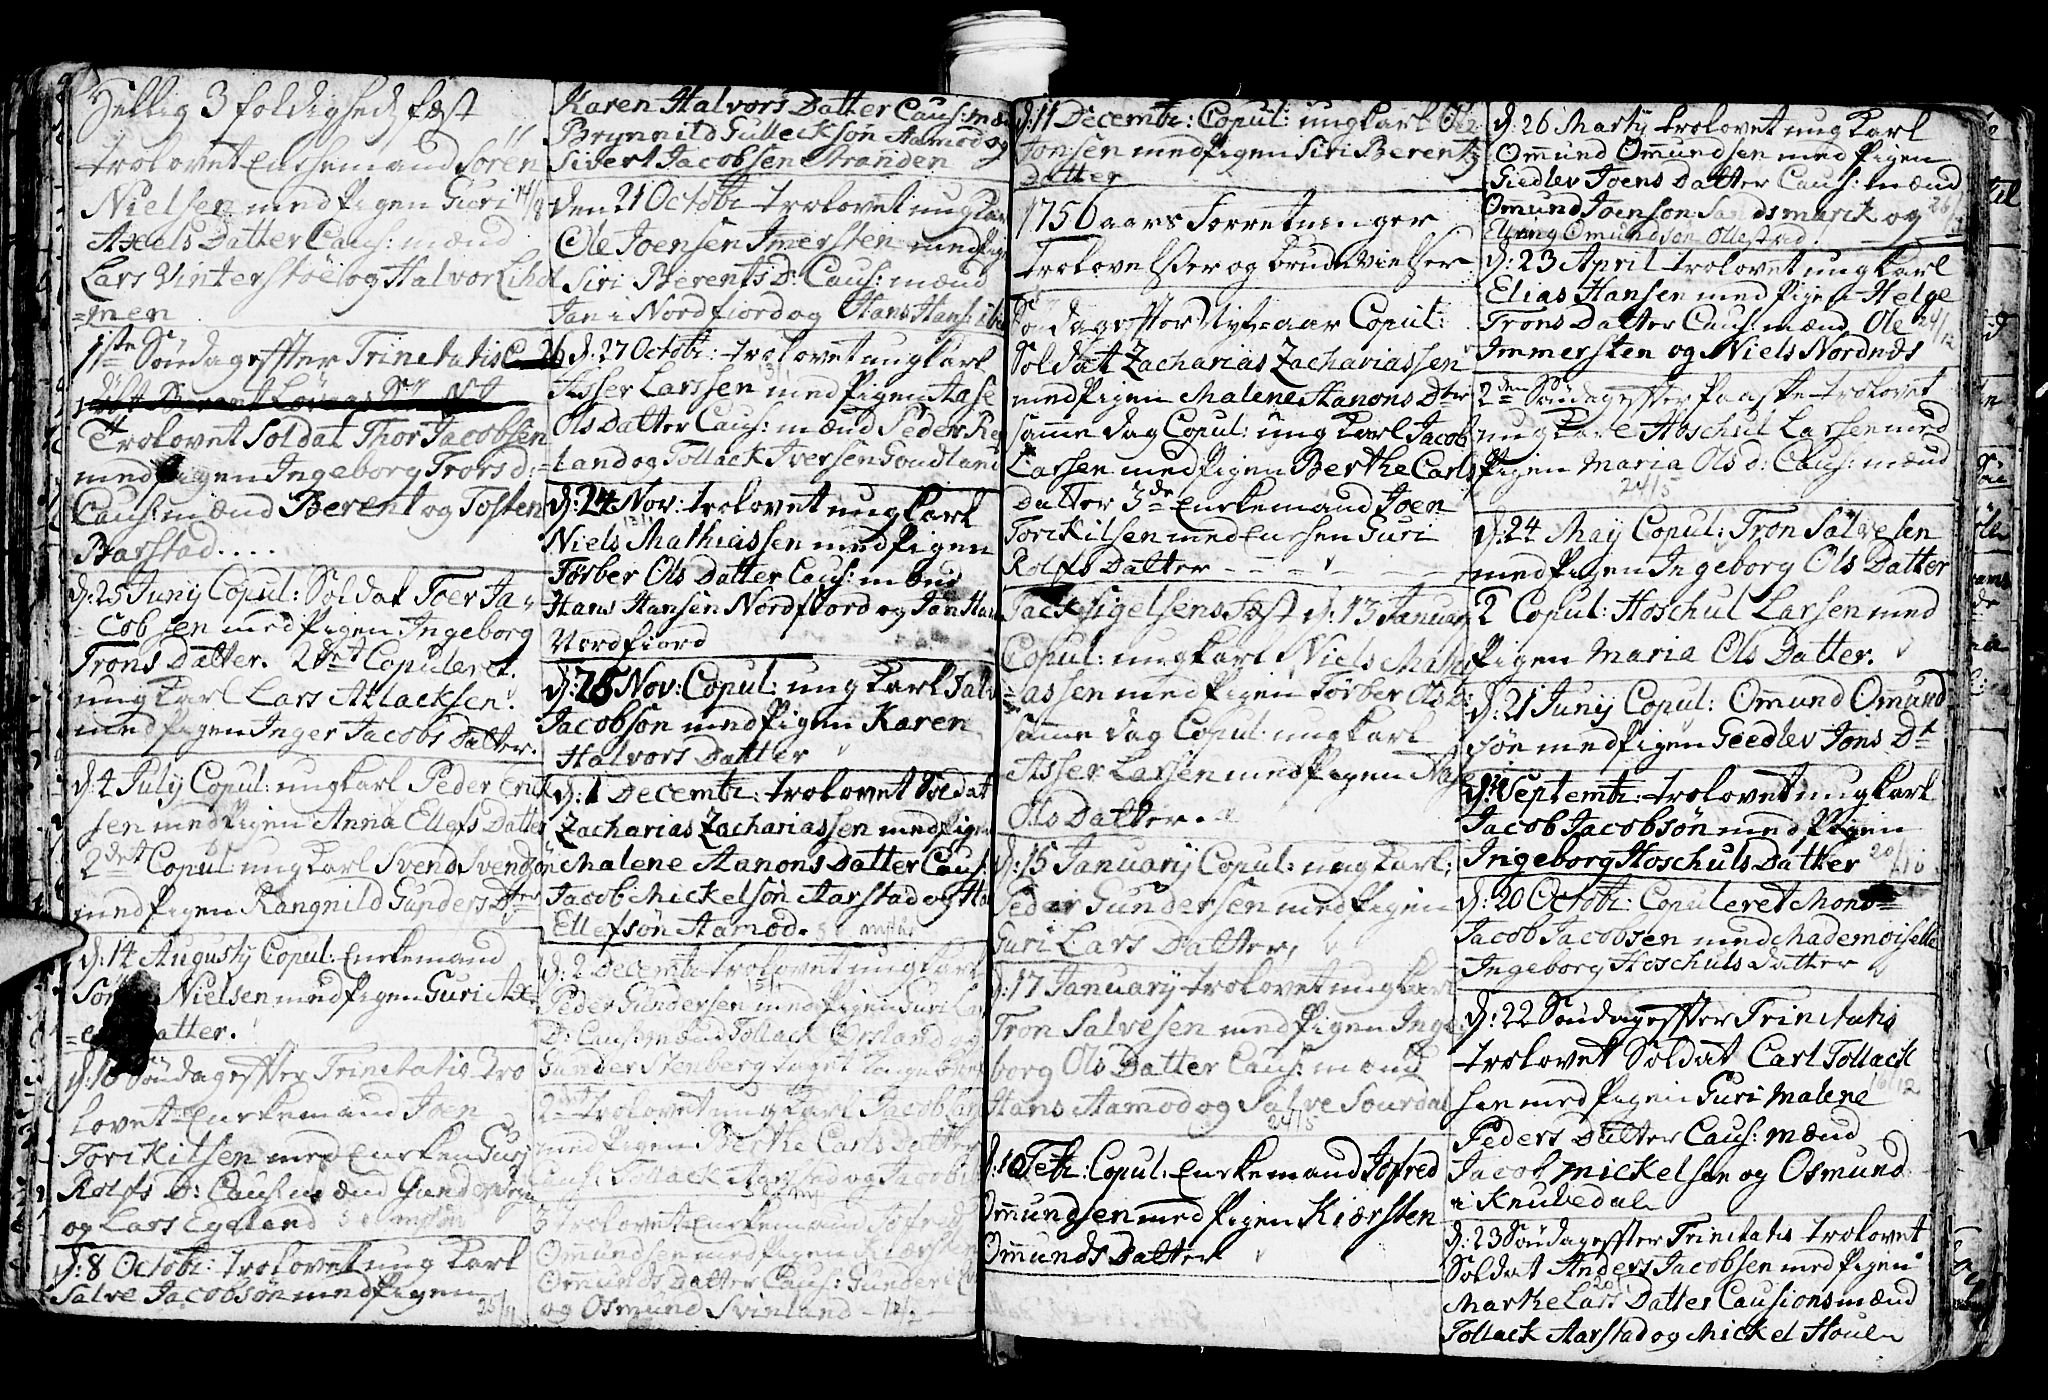 Hellig 3 foldigheds fæst
trolovet Enkemand Sören
Nielsen med Pigen Guri 14/8
Axels Datter Caus: mænd
Lars Vinterstöe og Halvor Lihol
=men
1ste Söndag effter Trinitatis
trolovet Soldat Thor Jacobsen
med Pigen Ingeborg Trors d:
Caus: mænd Berent og Tosten
Barstad....
d: 25 Junij Copul: Soldat Toer Ja=
cobsen med Pigen Ingeborg
Trons Datter. 2det Copuleret
ung Karl Lars Atlacksen
med Pigen Inger Jacobs Datter.
d: 4 July Copul: ungkarl Peder Erik
sen med Pigen Anna Ellefs Datter
2det Copul: ungkarl Svend Svendsön
med Pigen Rangnild Gunders Dtter
d: 14 Augustij Copul: Enkemand
Nielsen med Pigen Guri Ax=
atter.
d: 18 Söndag effter Trinitatis tro
lovet Enkemand Joen
Torkilsen med Enken Guri
Rolfs D: Caus: mænd
og Lars Egeland
d: 8 Octobr: trolovet ung karl
Salve Jacobsön med Pigen
Karen Halvors Datter Caus: mæ
Brynnild Gulleckson Aamod og
Sivert Jacobsen Stranden
den 21 Octobr trolovet ung kar
Ole Joensen Imersten med Pige
Siri Berents D: Caus: mænd
Jan i Nordfiord og Hans Hans:
d: 27 Octobr: trolovet ungkarl
Asser Larssen med Pigen Aase
Ols Datter Caus: mænd Peder Rey
=land og Tollack Iversen Goudland
d: 24 Nov: trolovet ungkarl
Niels Mathiassen med Pigen
Törber Ols Datter Caus: mænd
Hans Hansen Nordfiord og Jan Han
Nordfiord
d: 25 Nov: Copul: ung karl Salv
Jacobsön med Pigen Karen
Halvors Datter
d: 1 Decembr: trolovet Soldat
Zacharias Zachariassen med Pigen
Malene Aanons Datter Caus:
Jacob Mickelsön Aarstad og Ha
Ellefsön Aamod.
d: 2 Decembr trolovet ungkarl
Peder Gundersen med Pigen Guri Lar
D: Caus: mænd Tollack Örsland og
Gunder Stenberg
2det trolovet ung karl Jacob Lar
med Pigen Berthe Carls Datter
Caus: Tollack Aarstad og Jacob
3 trolovet Enkemand Jofred
Omundsen med Pigen Kiærsten
Omunds Datter Caus: Gunder
og Osmund Svinland
d: 11 Decembr: Copul: ungkarl Ole
Jonsen med Pigen Siri Berentz
Datter
1756 aars Forretninger
Trolovelsser og brudevielser
Söndag effter Nyt=aar Copul:
Soldat Zacharias Zachariassen
med Pigen Malene Aanons Dter
samme dag Copul: ung Karl Jacob
Larsen med Pigen Berthe Carls
Datter 3de Enkemand Joen
Torkilsen med Enken Guri
Rolfs Datter
Fact Sigelsens Fæst d: 13 Januarij
Copul: ungkarl Niels Mathi
=assen med Pigen Törber Ols D:
samme dag Copul: ungkarl
Asser Larsen med Pigen Aase
Ols Datter.
d: 15 Januarij Copul: ung karl:
Peder Gundersen med Pigen
Guri Lars Datter,
d: 17 Januarij trolovet ungkarl
Tron Salvesen med Pigen Inge
borg Ols Datter Caus: mænd
Hans Aamod og Salve Sourdal
24/5
d: 10 Febr: Copul: Enkemand Jofred
Omundsen med Pigen Kiærsten
Omunds Datter
d: 26 Martij trolovet ung Karl
Omund Omundsen med Pigen
Giedlev Joens Datter Caus: mænd
Omund Joenson Sandsmarck og
Elling Omundsön Ollestad.
d: 23 April trolovet ung karl
Elias Hansen med Pigen Helge
Trons Datter Caus: mænd Ole
Immersten og Niels Nordnæs
2den Söndag effter Paaske trolovet
ung Karl Hoschul Larsen med
Pigen Maria Ols d: Caus: mænd
24/5
d: 24 Maij Copul: Tron Salvesen
med Pigen Ingeborg Ols Datter
2 Copul: Hoschul Larsen med
Pigen Maria Ols Datter.
d: 21 Junij Copul: Omund Omund
sön med Pigen Goedlev Jons Dt
Septembr: trolovet ung karl
Jacob Jacobsön med Pigen
Ingeborg Hoschuls Datter 20/10
d: 20 Octobr: Copuleret Mons=
Jacob Jacobsen med Mademoiselle
Ingeborg Hoschuls Datter
d: 22 Söndag effter Trinitatis
trolovet Soldat Carl Tollack
sen med Pigen Guri Malene
Peders Datter Caus: mænd
Jacob Mickelsen og Osmund
i Knubedal
d: 23 Söndag effter Trinitatis trolovet
Soldat Anders Jacobsen med Pigen
Marthe Lars Datter Causions mænd
Tollack Aarstad og Mickel Houen